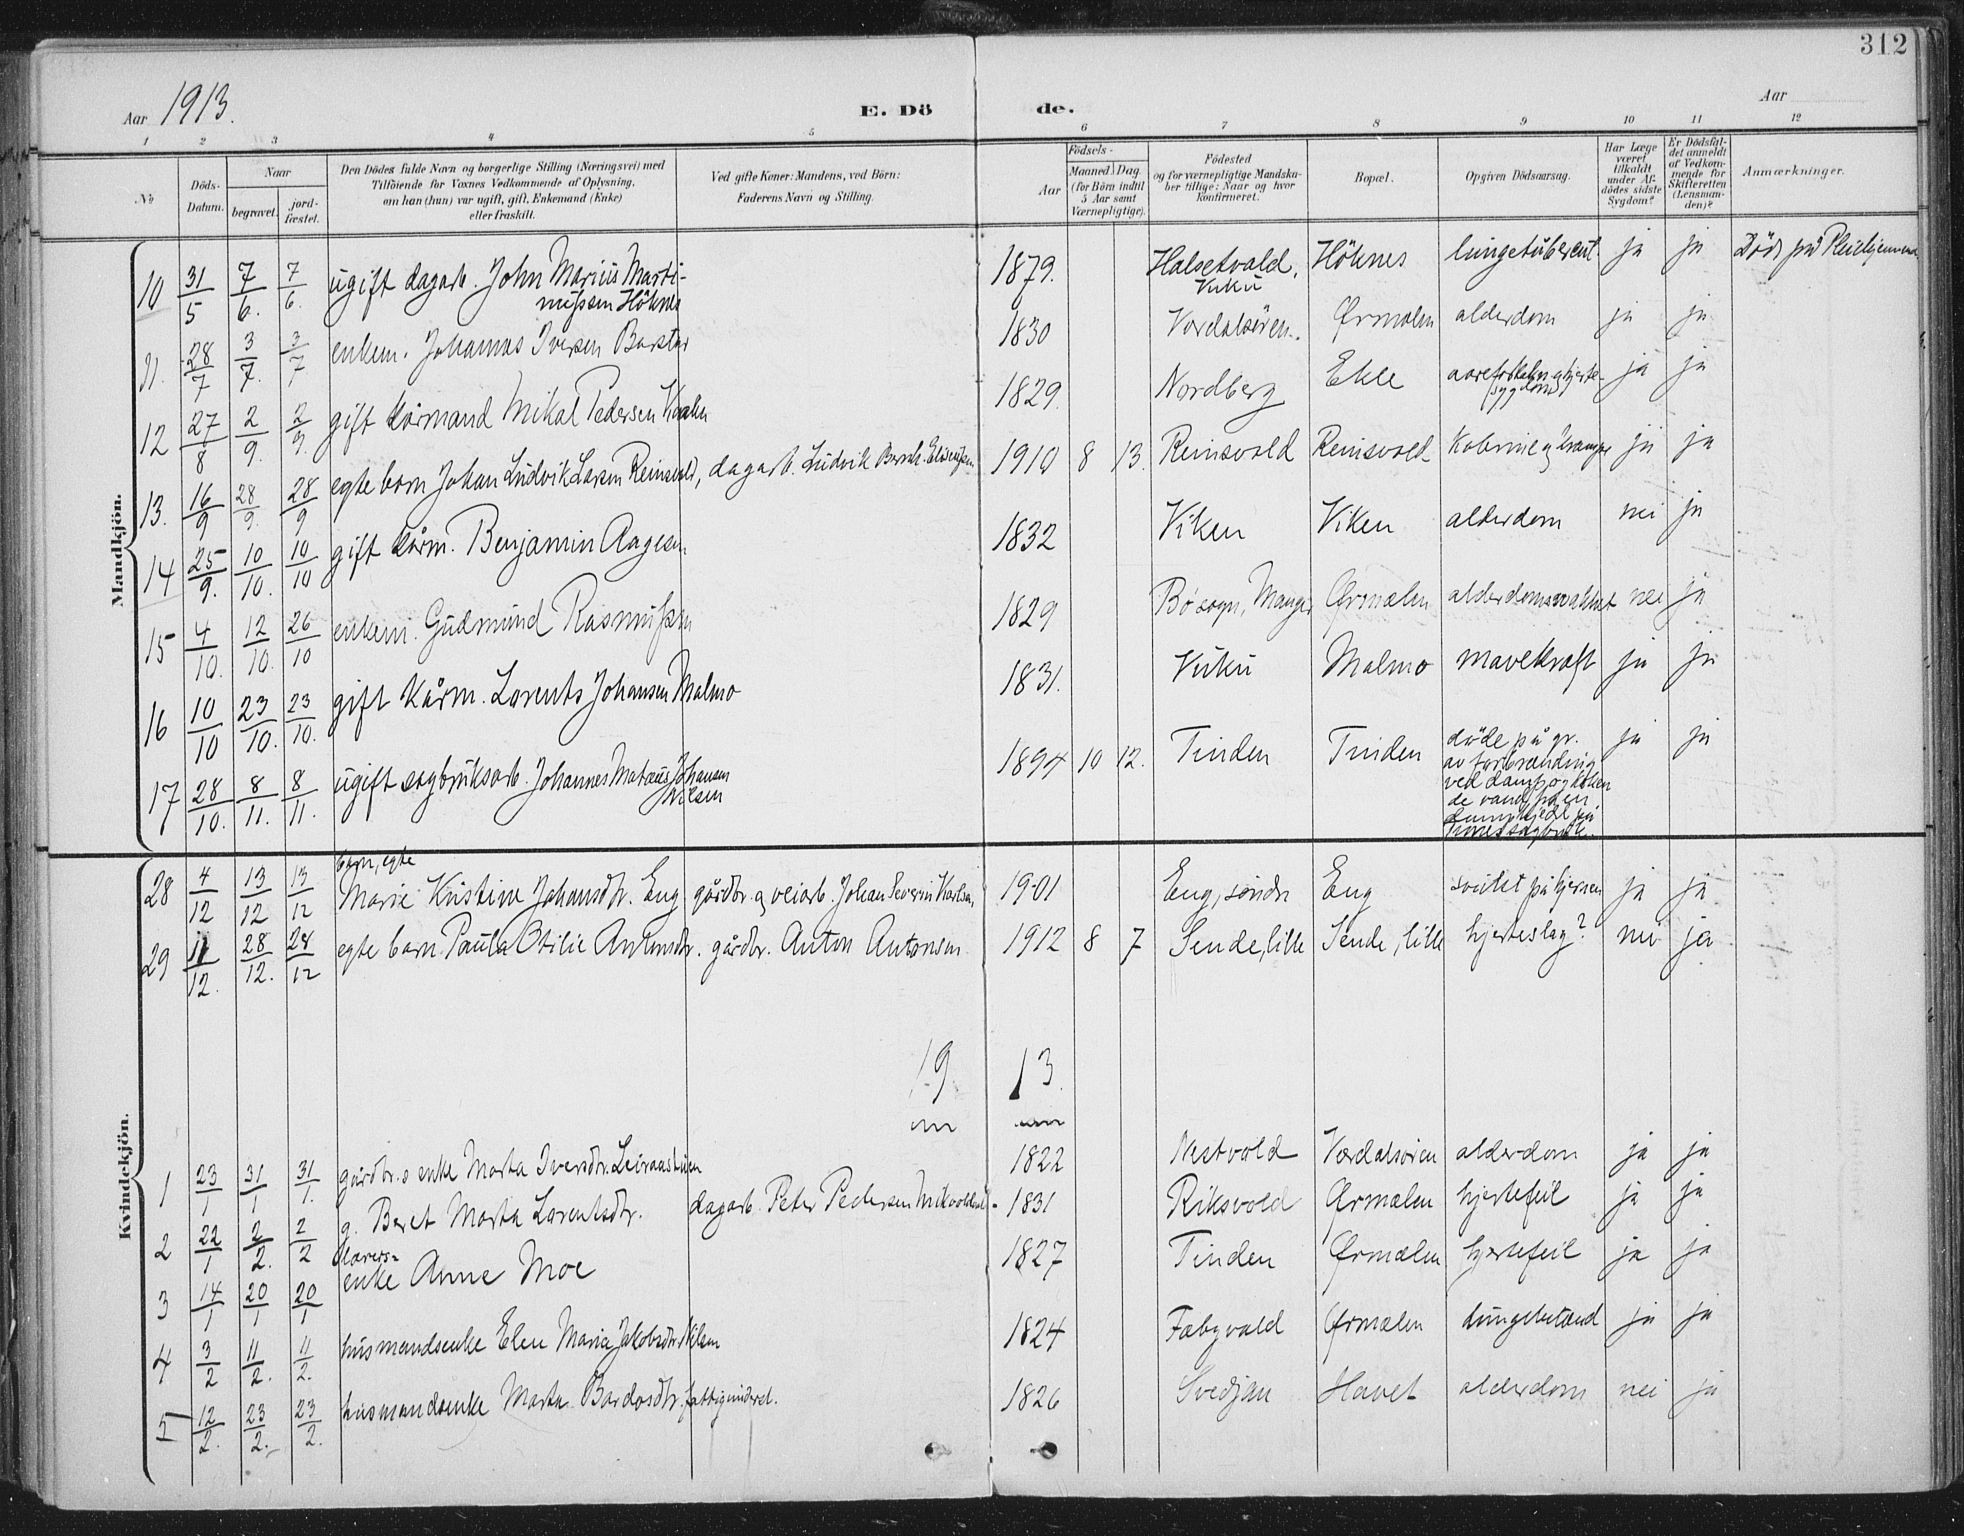 312
Aar 1913. E. Dö de. Aar
1 2 3 4 5 6 7 8 9 10 11 12
No
Döds-Datum.
Naar
begravet.
jord-fæstet.
Den Dödes fulde Navn og borgerlige Stilling (Næringsvei) med
Tilföiende for Voxnes Vedkommende af Oplysning,
om han (hun) var ugift, gift, Enkemand (Enke)
eller fraskilt.
Ved gifte Koner: Mandens, ved Börn:
Faderens Navn og Stilling.
Födsels-
Aar
Maaned Dag
(for Börn indtil
5 Aar samt
Værnepligtige).
Födested
og for værnepligtige Mandska-
ber tillige: Naar og hvor
konfirmeret.
Bopæl.
Opgiven Dödsaarsag.
Har Læge
været
tilkaldt
under Af-
dödes sidste
Sygdom?
Er Dödsfal-
det anmeldt
af Vedkom-
mende for
Skifteretten
(Lensman-
den)?
Anmærkninger.
Mandkjön.
10 31/5 7/6. 7/6. ugift dagarb. John Marius Marti-
nussen Höknes 1879. Halsetvald, Vuku Höknes lungetuberkul. ja ja Död på Pleiehjemmet
11. 28/7 3/7. 3/7 enkem. Johannes Iversen Borstad 1830 Værdalsören. Ørmælen alderdom ja ja
12 27/8 2/9. 2/9. gift kårmand Mikal Pedersen 1829. Nordberg Ekle hjerte-
sygdom ja ja
13. 16/9 28/9. 28/9 egte barn Johan Ludvik Larsen Reinsvold, dagarb. Ludvik 1910 8 13. Reinsvold Reinsvold krampe ja ja
14 25/9. 10/10. 10/10 gift kårm. Benjamin Aagesen 1832 Viken Viken alderdom nei ja
15 4/10. 12/10. 26/10 enkem. Gudmund Rasmussen 1829 Bö sogn, Ørmælen alderdomssvakhet nei ja
16 10/10 23/10. 23/10. gift kårm. Lorents Johansen Malmo 1831. Vuku Malmo mavekræft ja ja
17 28/10. 8/11. 8/11. ugift sagbruksarb. Johannes Mateus Johansen
Nilsen 1894 10 12. Tinden Tinden döde på gr.
av forbrænding
ved damp og koken
de vand ja ja
Kvindekjön.
28 4/12 13/12 13/12 barn, egte
Marie Kristine Johansdtr. Eng gårdbr. og veiarb. Johan Severin Karlsen, 1901 Eng, söndre Eng svulst på hjernen ja ja
29 11/12. 28/12. 28/12 egte barn Paula Otilie Antonsdtr. gårdbr. Anton Antonsen 1912 8 7 Sende, lille Sende, lille hjerteslag? nei ja
19 13.
1 23/1 31/1 31/1. gårdbr.s enke Marta Iversdtr. 1822 Nestvold Værdalsören alderdom ja ja
2 22/1 2/2. 2/2 g. Beret Marta Lorentsdtr. dagarb. Peter Pedersen 1831 Riksvold Ørmælen hjertefeil ja ja
3 14/1 20/1 20/1 enke Anne Moe 1827 Tinden Ørmælen hjertefeil ja ja
4 3/2 11/2. 11/2. husmandsenke Elen Maria Jakobsdtr. Nilsen 1824 Fæbyvald Ørmælen ja ja
5 12/2. 23/2. 23/2. husmandsenke Marta Bardosdtr. fattigunderst. 1826 Svedjan Havet alderdom nei ja